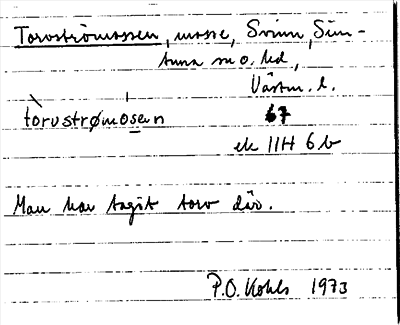 Torvströmossen, mosse, Svinn, Sim-
tuna sn o. hd,
Västm. l.
torvstrømosen 67
ek 11H 6b
Man har tagit torv där.
P.O. Kohls 1973